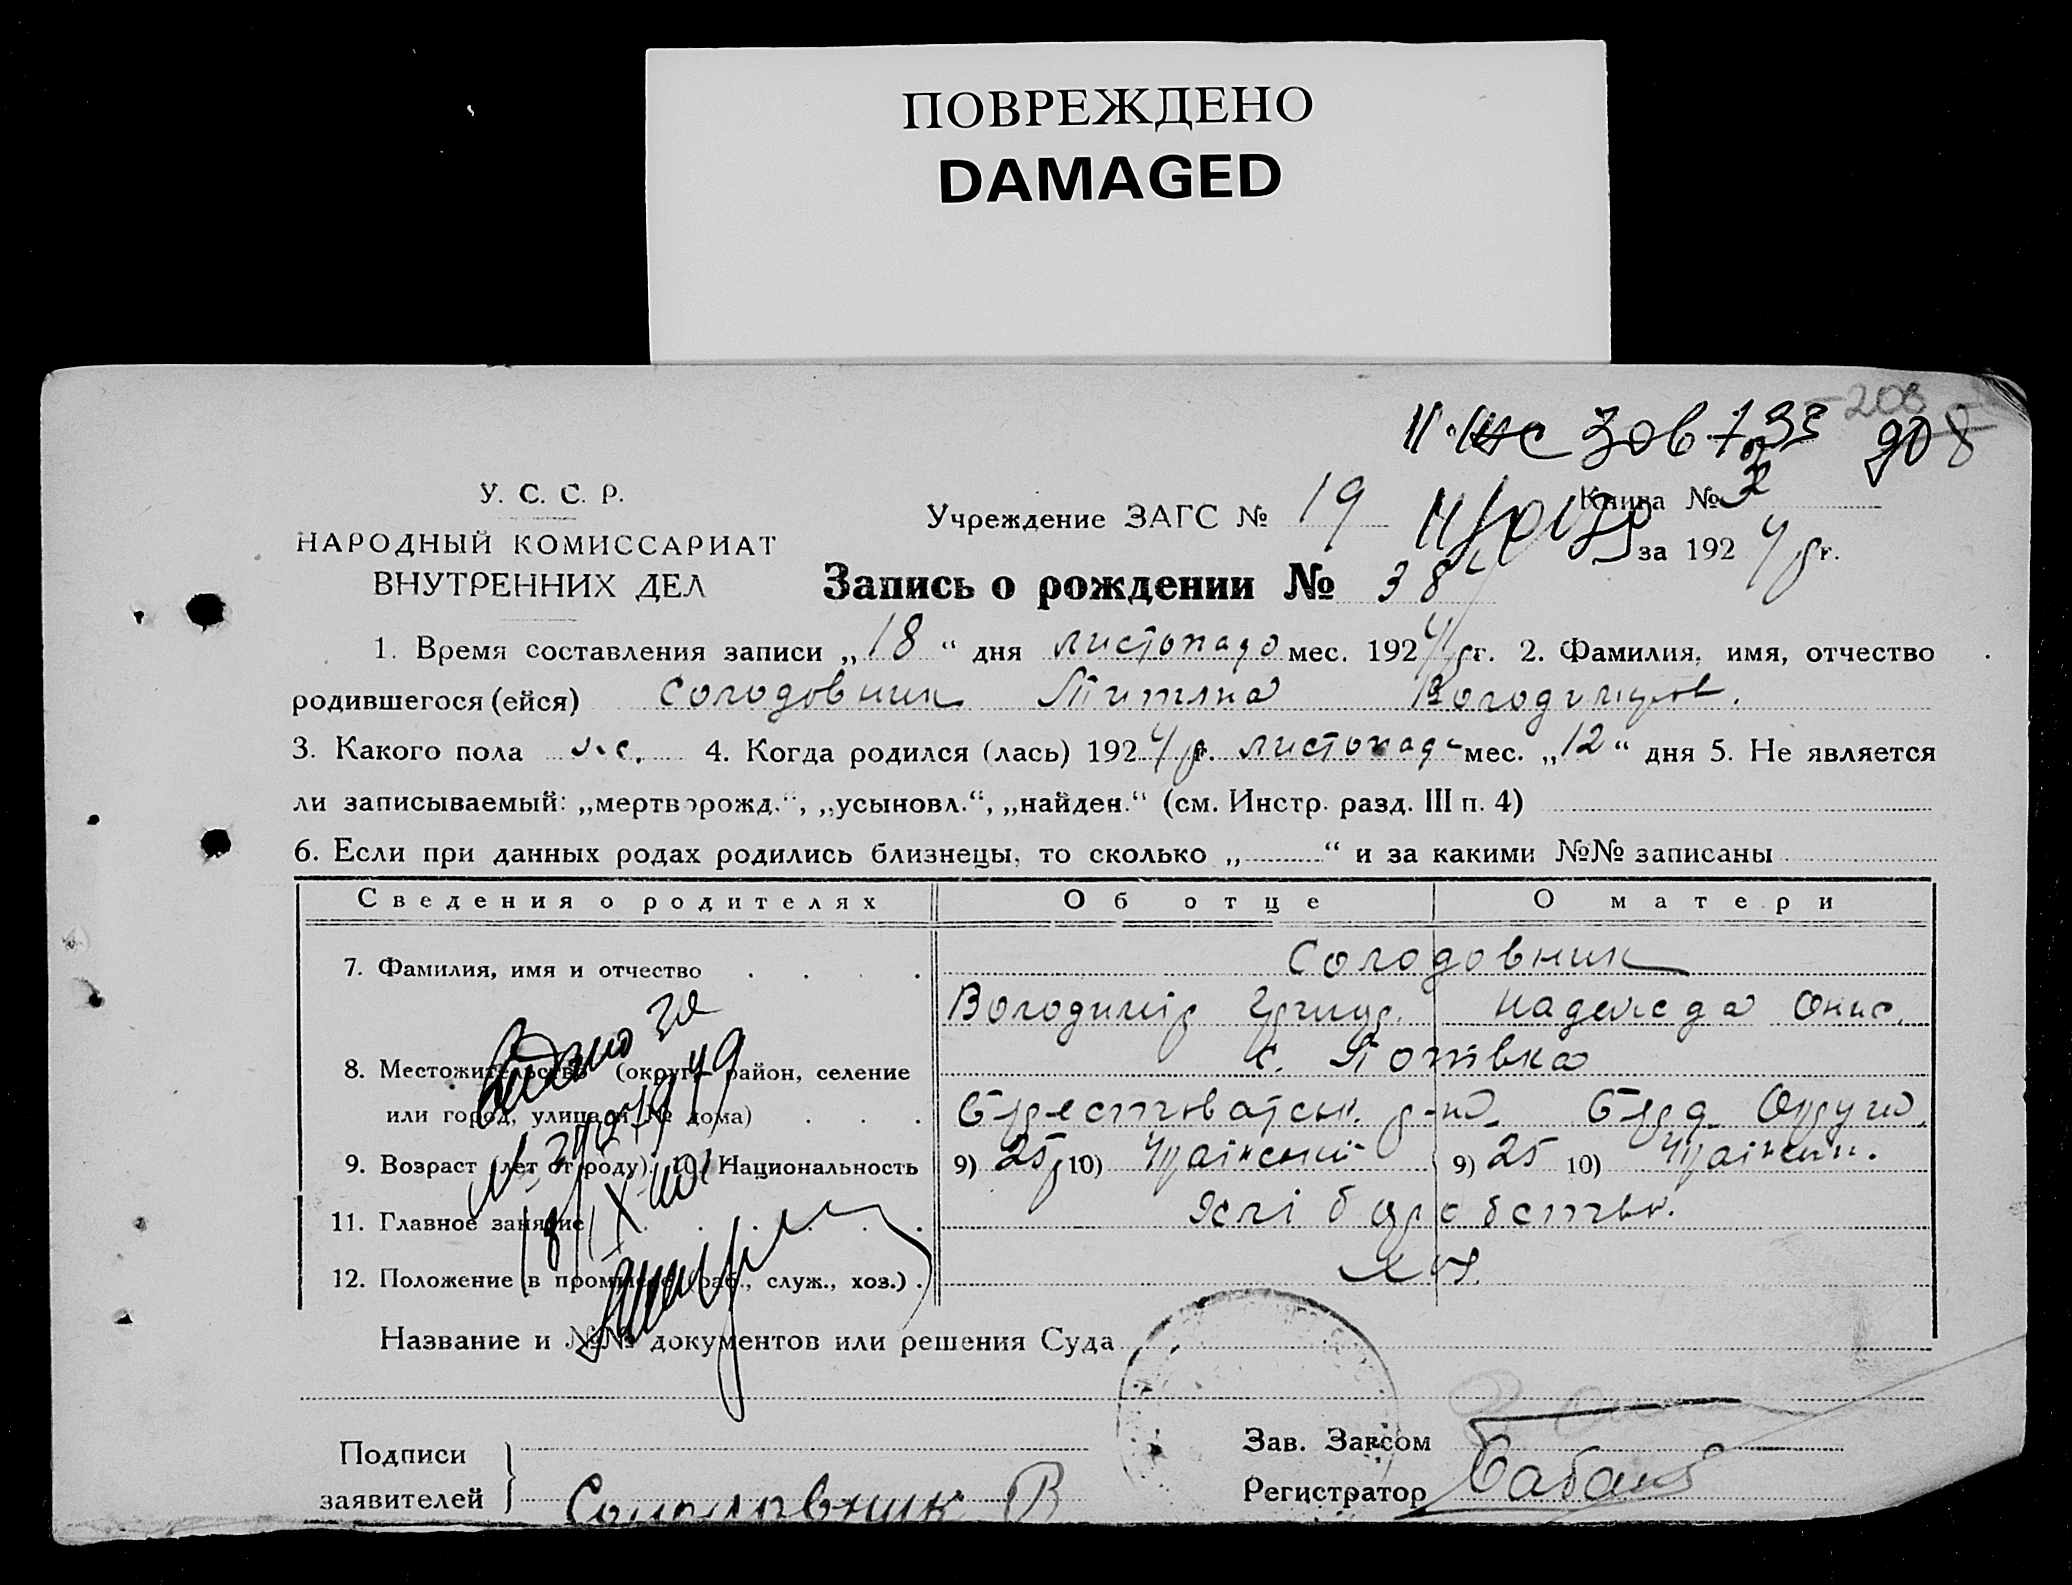 ПОВРЕЖДЕНО
DAMAGED
208
908
У. С. С. Р.
НАРОДНЫЙ КОМИССАРИАТ
ВНУТРЕННИХ ДЕЛ
Учреждение ЗАГС № 19
Книга № 2
за 1924 р г.
Запись о рождении № 38
1. Время составления записи „18“ дня листопада мес. 1924 р г. 2. Фамилия, имя, отчество
родившегося (ейся) Солодовник Титяна Володимиров.
3. Какого пола ж. 4. Когда родился (лась) 1924 р г. листопада мес. „12“ дня 5. Не является
ли записываемый: „мертворожд.“, „усыновл.“, „найден.“ (см. Инстр. разд. III п. 4)
6. Если при данных родах родились близнецы, то сколько „ “ и за какими №№ записаны
Сведения о родителях Об отце О матери
7. Фамилия, имя и отчество Солодовник
Володимір Григор. Надежда Онис.
8. Местожительство (округ, район, селение с. Потівка
или город, улица и № дома) р-ну Округи
9. Возраст (лет от роду) 10. Национальность 9) 25 р 10) Українській 9) 25 10) Українк.
11. Главное занятие Хліборобство.
12. Положение в промысле (раб., служ., хоз.)
Видано за
Название и №№ документов или решения Суда
Подписи
заявителей Солодовник В
Зав. Загсом
Регистратор